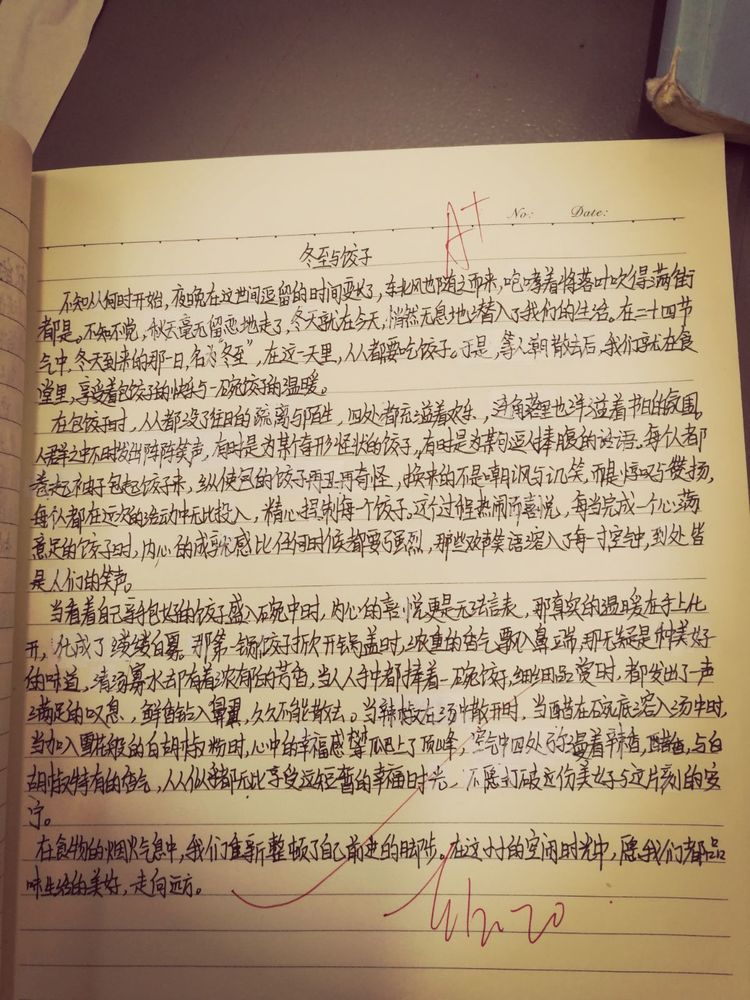 A+
No: Date:
冬至与饺子
不知从何时开始，夜晚在这世间逗留的时间变长了，东北风也随之而来，咆哮着将落叶吹得满街
都是。不知不觉，秋天毫无留恋地走了，冬天就在今天，悄然无息地潜入了我们的生活。在二十四节
气中，冬天到来的那一日，名为“冬至”，在这一天里，人人都要吃饺子。于是，等人潮散去后，我们就在食
堂里，享受着包饺子的快乐与一碗饺子的温暖。
在包饺子时，人人都没了往日的疏离与陌生，四处都充溢着欢乐，连角落里也洋溢着节日的氛围。
人群之中不时发出阵阵笑声，有时是为某个奇形怪状的饺子，有时是为某句逗人捧腹的话语。每个人都
卷起袖子包起饺子来，纵使包的饺子再丑再奇怪，换来的不是嘲讽与讥笑，而是惊叹与赞扬，
每个人都在这次的活动中无比投入，精心捏制每个饺子。这个过程热闹而喜悦，每当完成一个心满
意足的饺子时，内心的成就感比任何时候都要强烈，那些欢声笑语溶入了每一寸空气中，到处皆
是人们的笑声。
当看着自己亲手包好的饺子盛入碗中时，内心的喜悦更是无法言表，那真实的温暖在手上化
开，化成了缕缕白雾。那第一锅饺子掀开锅盖时，浓重的香气飘入鼻端，那无疑是种美好
的味道。清汤寡水却有着浓郁的芳香，当人人手中都捧着一碗饺子，细细品赏时，都发出了一声
满足的叹息，鲜香钻入鼻翼，久久不能散去。当辣椒在汤中散开时，当醋在碗底溶入汤中时，
当加入雪花般的白胡椒粉时，心中的幸福感攀爬上了顶峰，空气中四处弥溢着辣香，醋香，与白
胡椒特有的香气，人人似乎都无比享受这短暂的幸福时光，不愿打破这份美好与这片刻的安
宁。
在食物的烟火气息中，我们重新整顿了自己前进的脚步。在这小小的空闲时光中，愿我们都品
味生活的美好，走向远方。